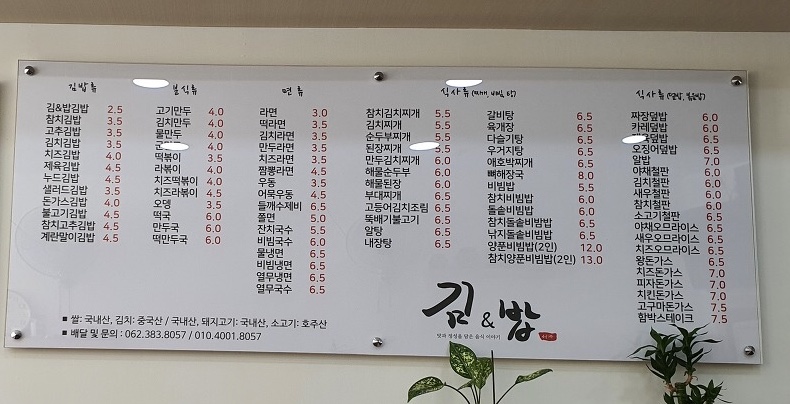 김밥류
김&밥김밥 2.5
참치김밥 3.5
고추김밥 3.5
김치김밥 3.5
치즈김밥 4.0
제육김밥 4.5
누드김밥 4.5
샐러드김밥 3.5
돈가스김밥 4.0
불고기김밥 4.5
참치고추김밥 4.5
계란말이김밥 4.5
분식류
고기만두 4.0
김치만두 4.0
물만두 4.0
4.0
떡볶이 3.5
라볶이 4.0
치즈떡볶이 4.0
치즈라볶이 4.5
오뎅 3.5
떡국 6.0
만두국 6.0
떡만두국 6.0
면류
라면 3.0
떡라면 3.5
김치라면 3.5
만두라면 3.5
치즈라면 3.5
짬뽕라면 4.5
우동 3.5
어묵우동 4.5
들깨수제비 6.5
쫄면 5.0
잔치국수 5.5
비빔국수 6.0
물냉면 6.5
비빔냉면 6.5
열무냉면 6.5
열무국수 6.5
식사류 (찌개, 비빔, 탕)
참치김치찌개 5.5
김치찌개 5.5
순두부찌개 5.5
된장찌개 5.5
만두김치찌개 6.0
해물순두부 6.0
해물된장 6.0
부대찌개 6.5
고등어김치조림 6.5
뚝배기불고기 6.5
알탕 6.5
내장탕 6.5
갈비탕 6.5
육개장 6.5
다슬기탕 6.5
우거지탕 6.5
애호박찌개 6.5
뼈해장국 8.0
비빔밥 5.5
참치비빔밥 6.0
돌솥비빔밥 6.0
참치돌솥비빔밥 6.5
낙지돌솥비빔밥 6.5
양푼비빔밥(2인) 12.0
참치양푼비빔밥(2인) 13.0
식사류 (덮밥, 볶음밥)
짜장덮밥 6.0
카레덮밥 6.0
덮밥 6.5
오징어덮밥 6.5
알밥 7.0
야채철판 6.0
김치철판 6.0
새우철판 6.0
참치철판 6.0
소고기철판 6.5
야채오므라이스 6.5
새우오므라이스 6.5
참치오므라이스 6.5
왕돈가스 6.5
치즈돈가스 7.0
피자돈가스 7.0
치킨돈가스 7.0
고구마돈가스 7.5
함박스테이크 7.5
■ 쌀: 국내산, 김치: 중국산 / 국내산, 돼지고기: 국내산, 소고기: 호주산
■ 배달 및 문의 : 062.383.8057 / 010.4001.8057
김&밥
맛과 정성을 담은 음식 이야기